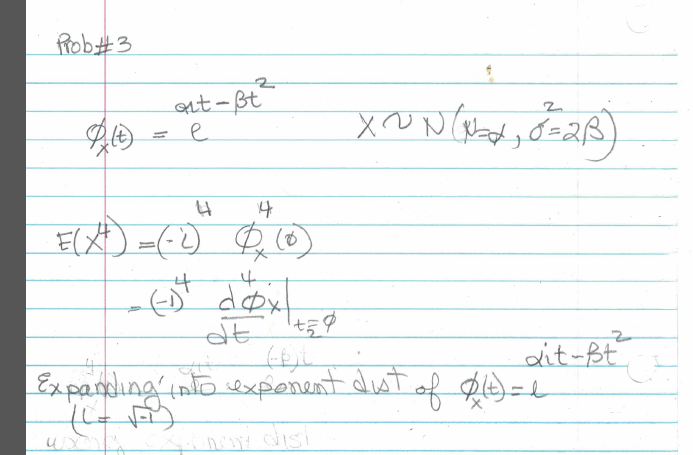 Prob#3
ϕₓ(t) = e^(αit-βt²)    X ~ N(μ=α, σ²=2β)
E(X⁴) = (-i)⁴ ϕₓ⁴(0)
= (-1)⁴ d⁴ϕx/dt |t=0
Expanding into exponent dist of ϕₓ(t) = e^(αit-βt²)
(i = √-1)